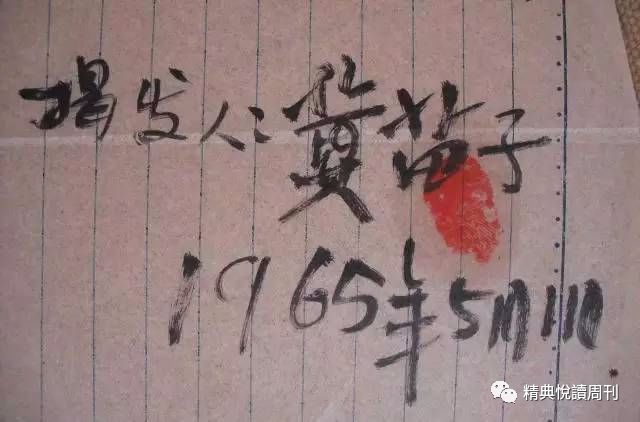 揭发人：黄苗子
1965年5月11日
精典悦讀周刊